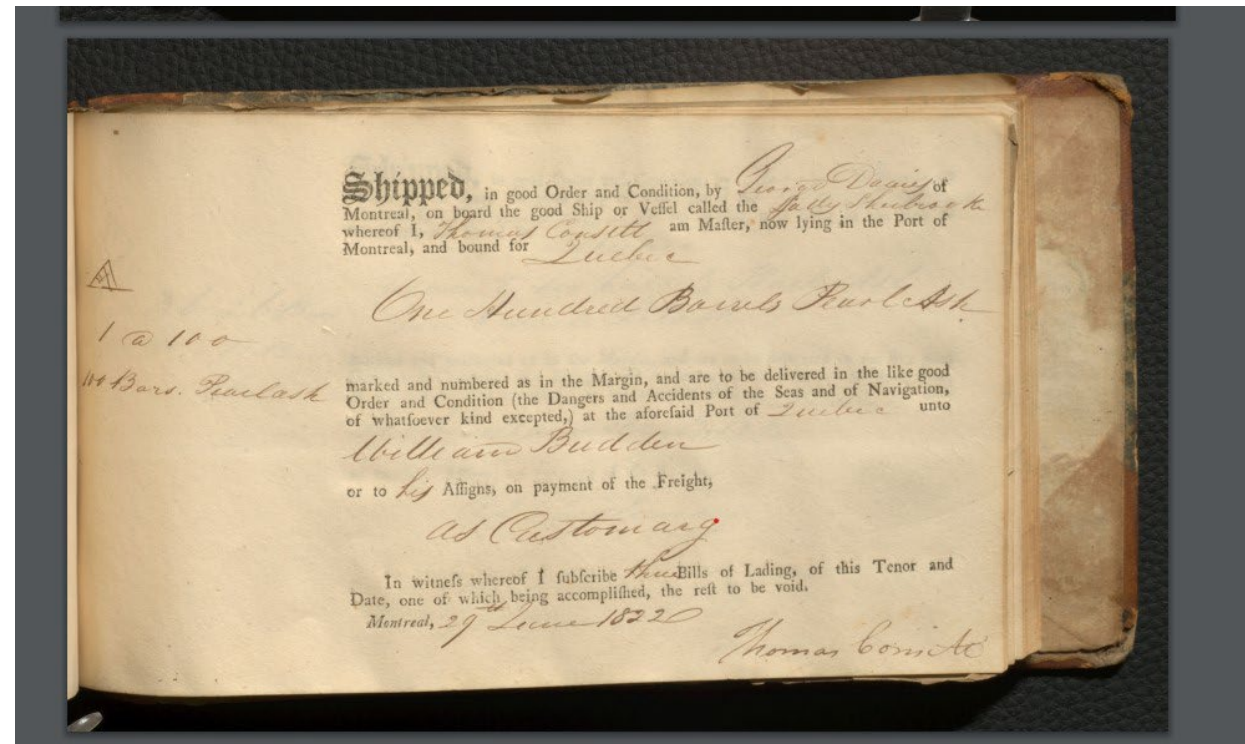 Shipped, in good Order and Condition, by George Davies of
Montreal, on board the good Ship or Veſſel called the Lady Sherbrooke
whereof I, Thomas Consitt am Maſter, now lying in the Port of
Montreal, and bound for Quebec
One Hundred Barrels Pearl Ash
1 @ 100
100 Bars. Pearlash
marked and numbered as in the Margin, and are to be delivered in the like good
Order and Condition (the Dangers and Accidents of the Seas and of Navigation,
of whatſoever kind excepted,) at the aforeſaid Port of Quebec unto
William Budden
or to his Aſſigns, on payment of the Freight,
as Customary
In witneſs whereof I ſubſcribe three Bills of Lading, of this Tenor and
Date, one of which being accompliſhed, the reſt to be void.
Montreal, 29th June 1822
Thomas Consitt